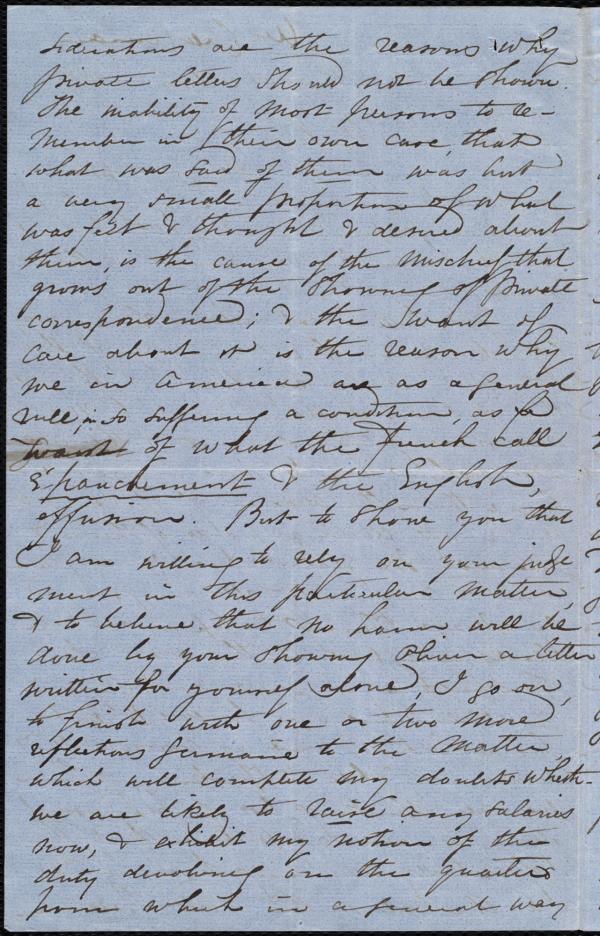 siderations are the reasons why
private letters should not be shown.
The inability of most persons to re-
member in their own case, that
what was said of them was but
a very small proportion of what
was felt & thought & desired about
them, is the cause of the mischief that
grows out of the showing of private
correspondence; & the want of
care about it is the reason why
we in America are as a general
rule, in so suffering a condition, as
want of what the French call
épanchement & the English,
effusion. But to show you that
I am willing to rely on your judg
ment in this particular matter,
& to believe that no harm will be
done by your showing Oliver a letter
written for yourself alone, I go on,
to finish with one or two more
reflections germaine to the matter,
which will complete my doubts wheth-
we are likely to raise any salaries
now, & exhibit my notion of the
duty devolving on the quarter
from which in a general way